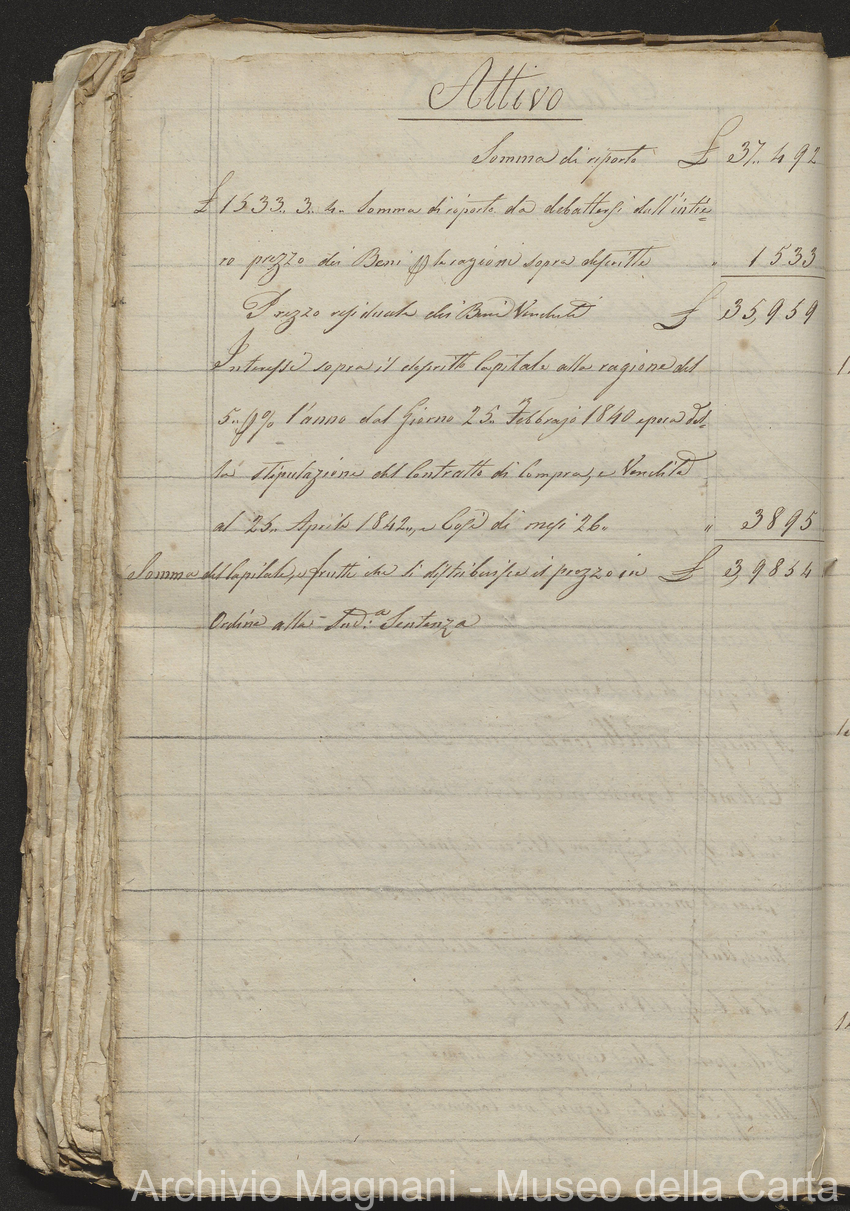 Attivo
Somma di riporto £ 37,, 492
£ 1533,, 3,, 4,, Somma di riporto da dibattersi dall'intie=
ro prezzo dei Beni p le ragioni sopra descritte " 1533
Prezzo residuale dei Beni Venduti £ 35,959
Interesse sopra il descritto Capitale alla ragione del
5,, p % l'anno dal Giorno 25,, Febbrajo 1840 epoca del=
la stipulazione del Contratto di Compra, e Vendita
al 25,, Aprile 1842,, e Così di mesi 26,, " 3895
Somma del Capitale, e frutti che si distribuisce il prezzo in £ 39854
Ordine alla Sud.a Sentenza
Archivio Magnani - Museo della Carta